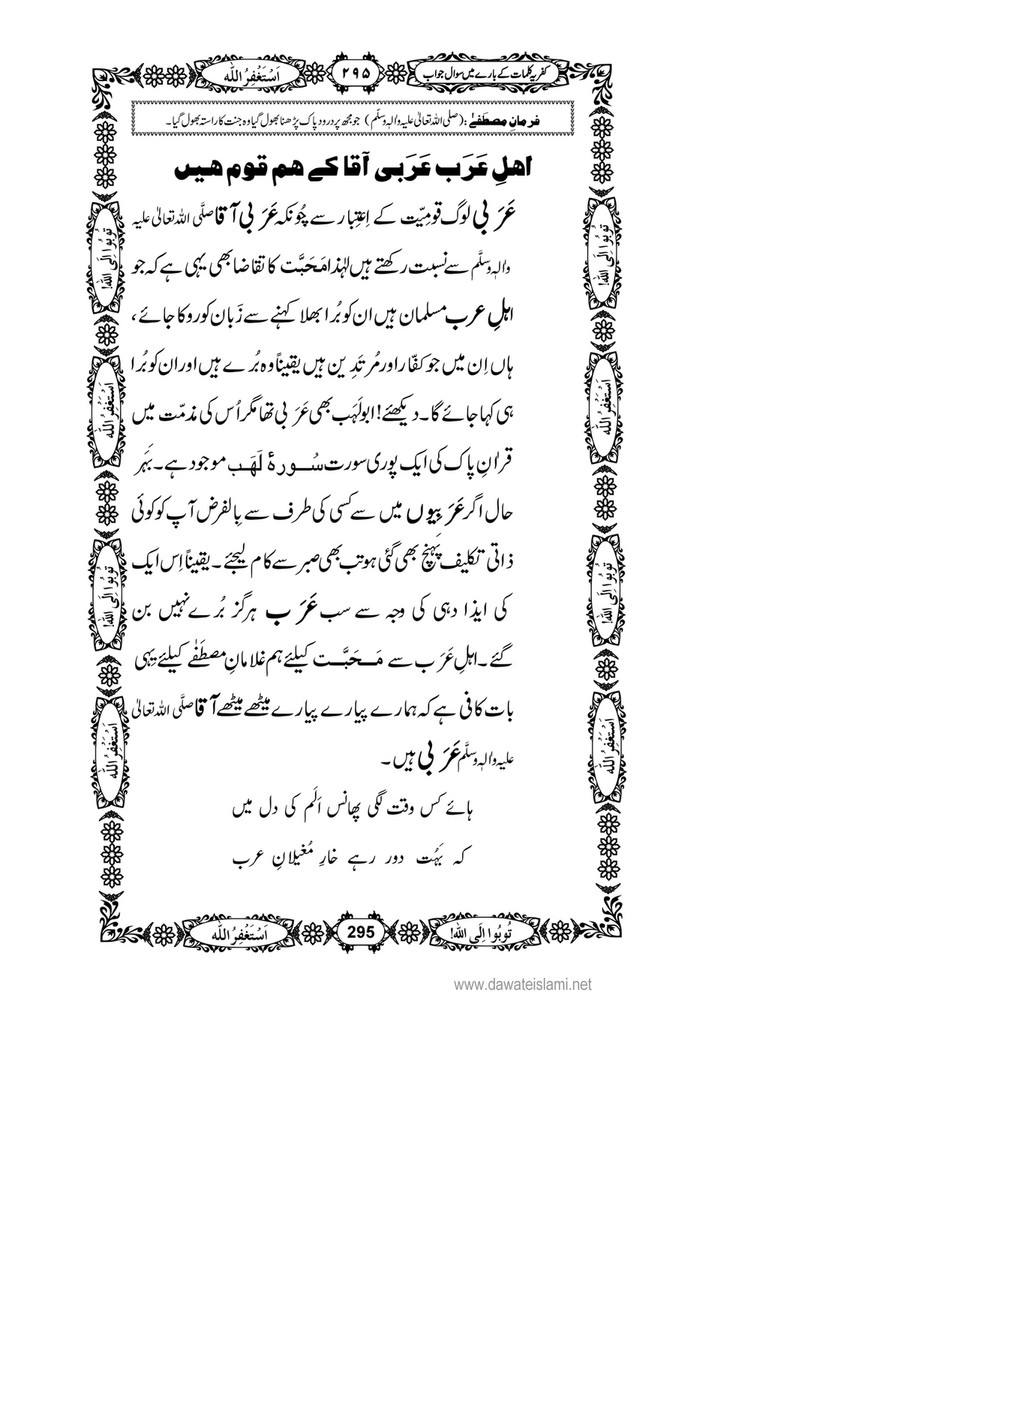 کفریہ کلمات کے بارے میں سوال جواب
۲۹۵
اَسْتَغْفِرُ اللّٰه
فرمانِ مصطَفٰے : (صلی اللہ تعالیٰ علیہ والہٖ وسلّم) جو مجھ پر درود پاک پڑھنا بھول گیا وہ جنت کا راستہ بھول گیا۔
اھلِ عَرَب عَرَبی آقا کے ھم قوم ھیں
عَرَبی لوگ قومِیّت کے اِعتِبار سے چُونکہ عَرَبی آقا صلَّی اللہ تعالیٰ علیہ
والہٖ وسلَّم سے نسبت رکھتے ہیں لہٰذا مَحَبَّت کا تقاضا بھی یہی ہے کہ جو
اہلِ عرب مسلمان ہیں ان کو بُرا بھلا کہنے سے زَبان کو روکا جائے ،
ہاں اِن میں جو کفّار اور مُرتَدِین ہیں یقیناً وہ بُرے ہیں اور ان کو بُرا
ہی کہا جائے گا۔ دیکھئے! ابولَہَب بھی عَرَبی تھا مگر اُس کی مذمّت میں
قراٰنِ پاک کی ایک پوری سورت سُورۂ لَھَب موجود ہے۔ بَہَر
حال اگر عَرَبِیوں میں سے کسی کی طرف سے بِالفرض آپ کو کوئی
ذاتی تکلیف پہنچ بھی گئی ہو تب بھی صبر سے کام لیجئے۔ یقیناً اِس ایک
کی ایذا دہی کی وجہ سے سب عَرَب ہرگز بُرے نہیں بن
گئے۔ اہلِ عَرَب سے مَحَبَّت کیلئے ہم غلامانِ مصطَفٰے کیلئے یہی
بات کافی ہے کہ ہمارے پیارے پیارے میٹھے میٹھے آقا صلَّی اللہ تعالیٰ
علیہ والہٖ وسلَّم عَرَبی ہیں۔
ہائے کس وقت لگی پھانس اَلَم کی دل میں
کہ بَہُت دور رہے خارِ مُغیلانِ عرب
تُوبُوا اِلَی اللّٰه!
اَسْتَغْفِرُ اللّٰه
تُوبُوا اِلَی اللّٰه!
اَسْتَغْفِرُ اللّٰه
تُوبُوا اِلَی اللّٰه!
اَسْتَغْفِرُ اللّٰه
تُوبُوا اِلَی اللّٰه!
اَسْتَغْفِرُ اللّٰه
تُوبُوا اِلَی اللّٰه!
295
اَسْتَغْفِرُ اللّٰه
www.dawateislami.net